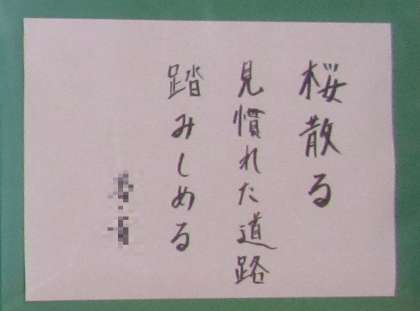 桜散る
見慣れた道路
踏みしめる